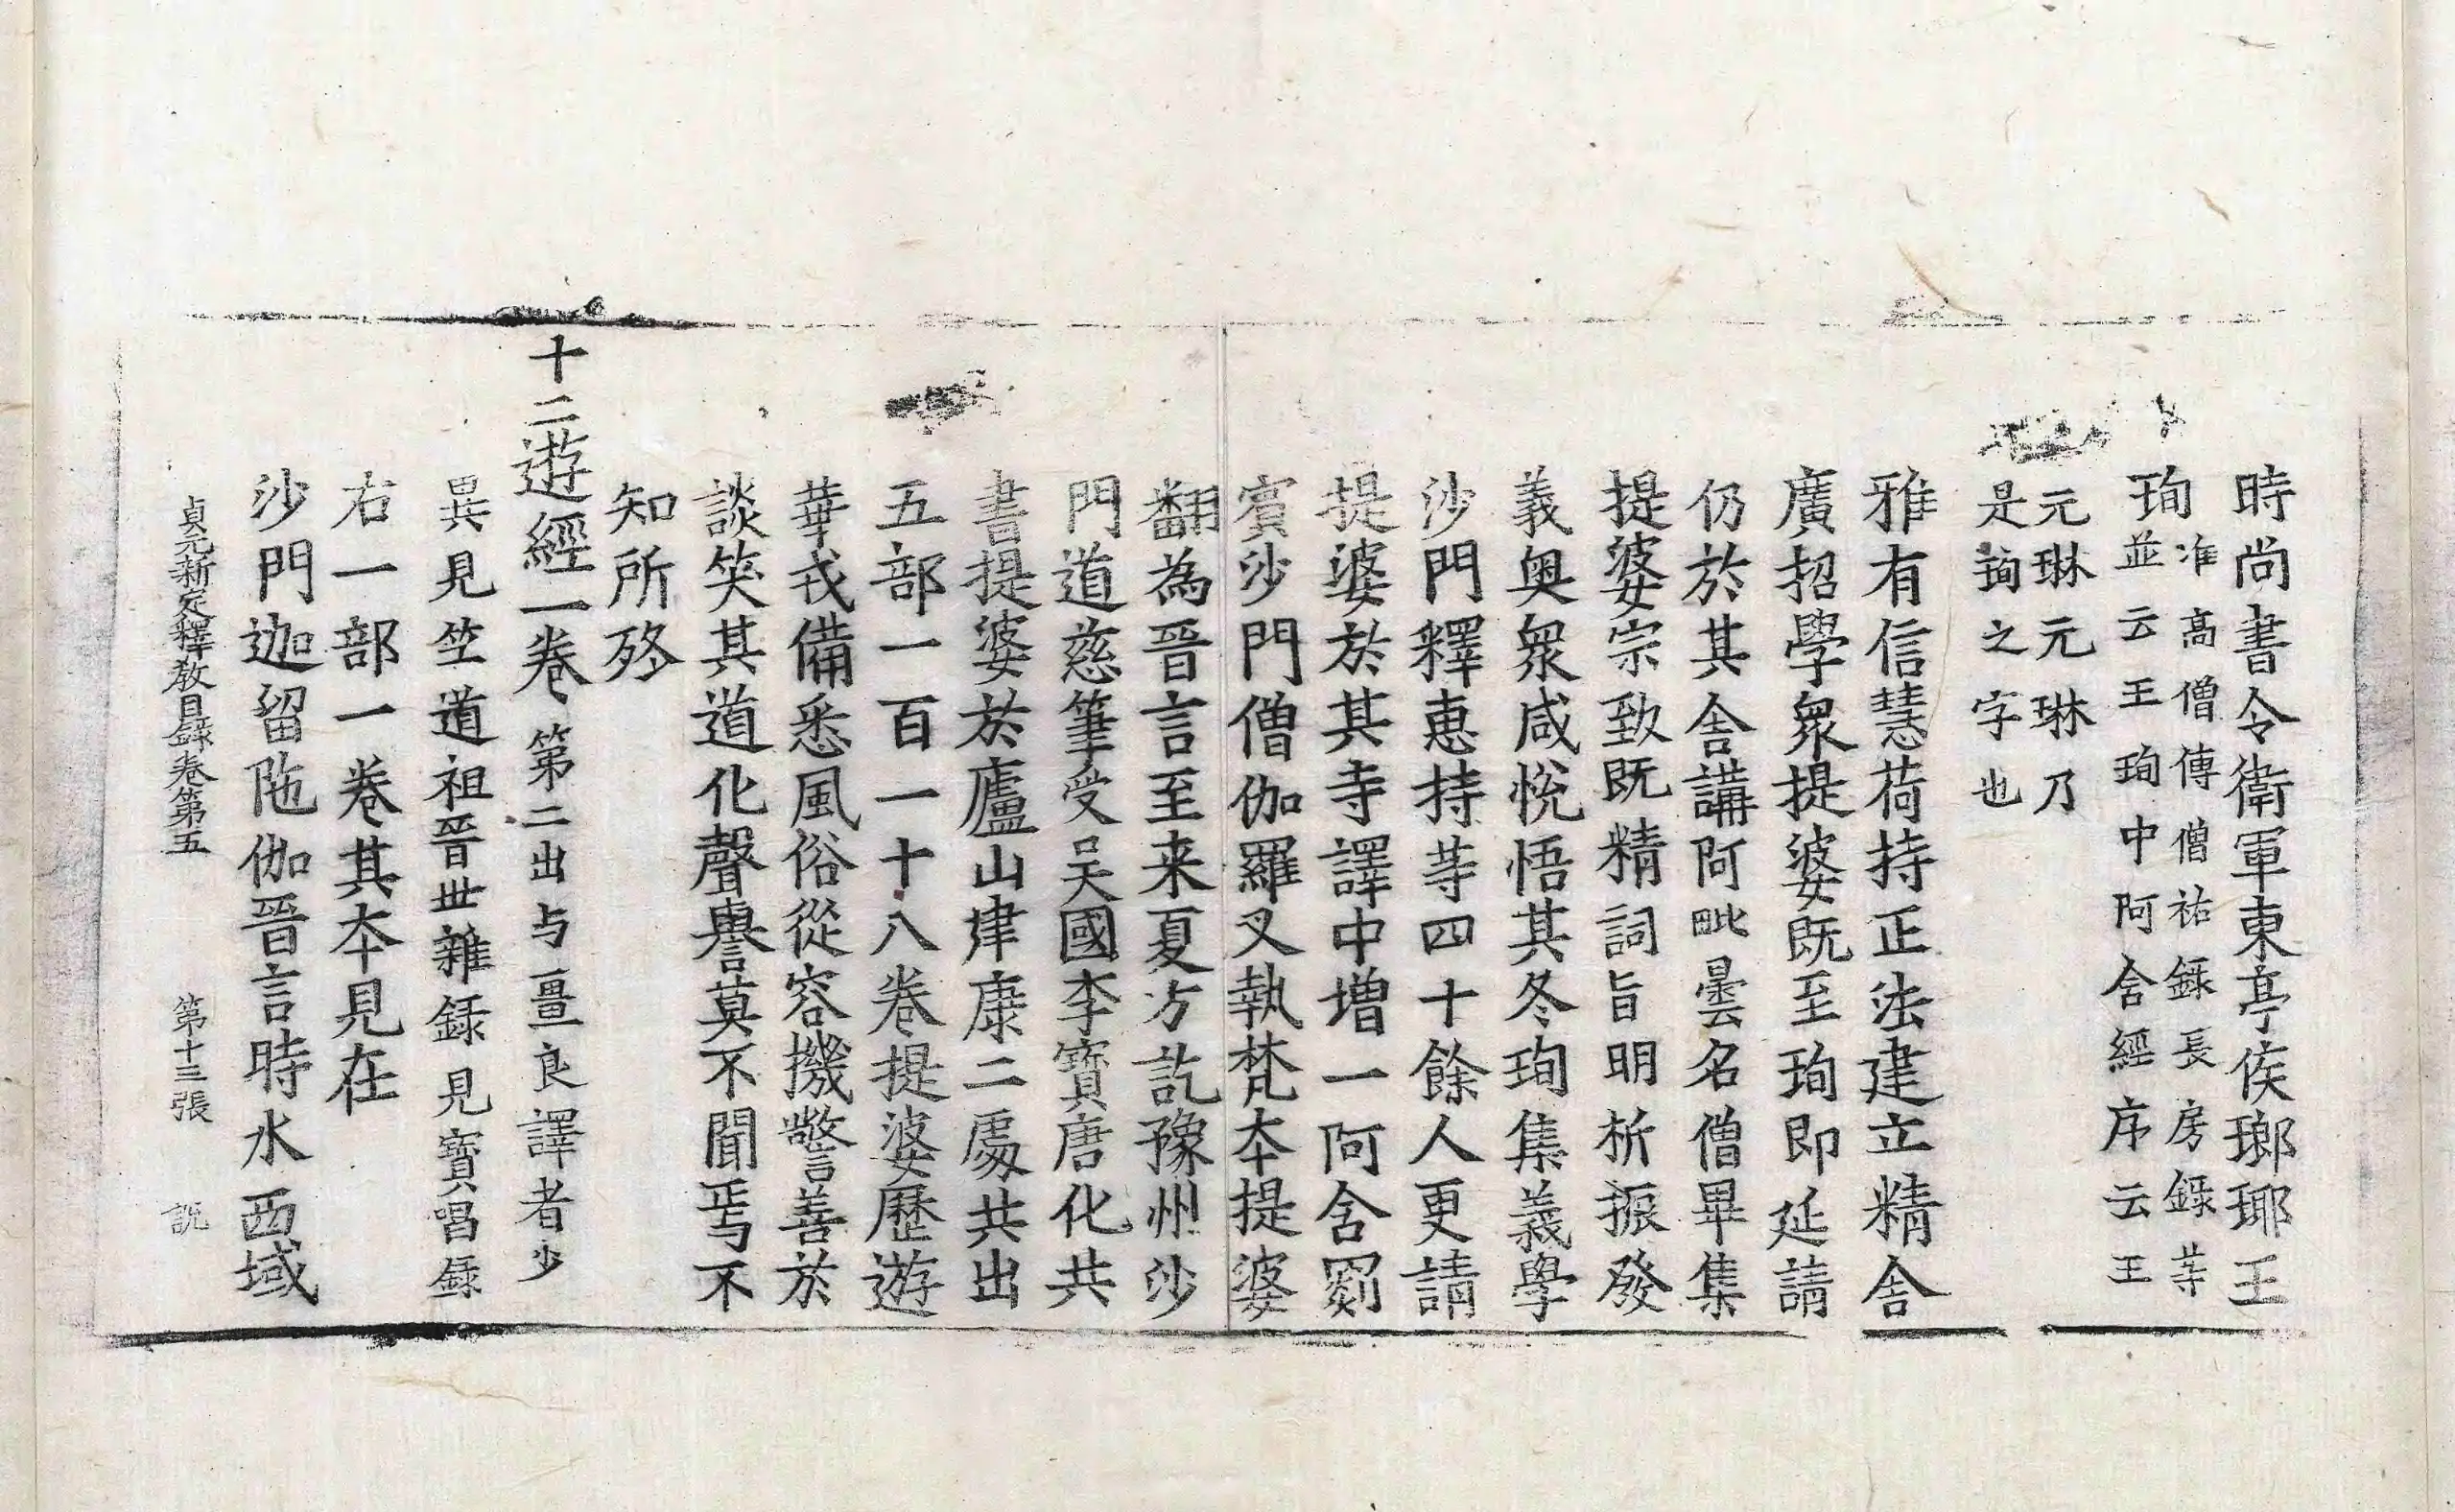 時尚書令衛軍東亭侯瑯琊王
珣准高僧傳僧祐録長房録䓁
並云王珣中阿含經序云王
元琳元琳乃
是珣之字也
雅有信慧荷持正法建立精舎
廣招學衆提婆既至珣即延請
仍於其舎講阿毗曇名僧畢集
提婆宗致既精詞旨明析振發
義奥衆咸悅悟其冬珣集義學
沙門釋惠持䓁四十餘人更請
提婆於其寺譯中増一阿含罽
賓沙門僧伽羅叉執梵夲提婆
翻為晉言至来夏方訖豫州沙
門道慈筆受吴國李寶唐化共
書提婆於廬山建康二處共出
五部一百一十八卷提婆歷遊
華戎備悉風俗從容機警善於
談笑其道化聲譽莫不聞焉不
知所終
十二遊經一卷第二出与畺良譯者少
異見竺道祖晉世雜録見寶唱録
右一部一卷其夲見在
沙門迦留陁伽晉言時水西域
貞元新定釋教目録卷第五　第十三張　説